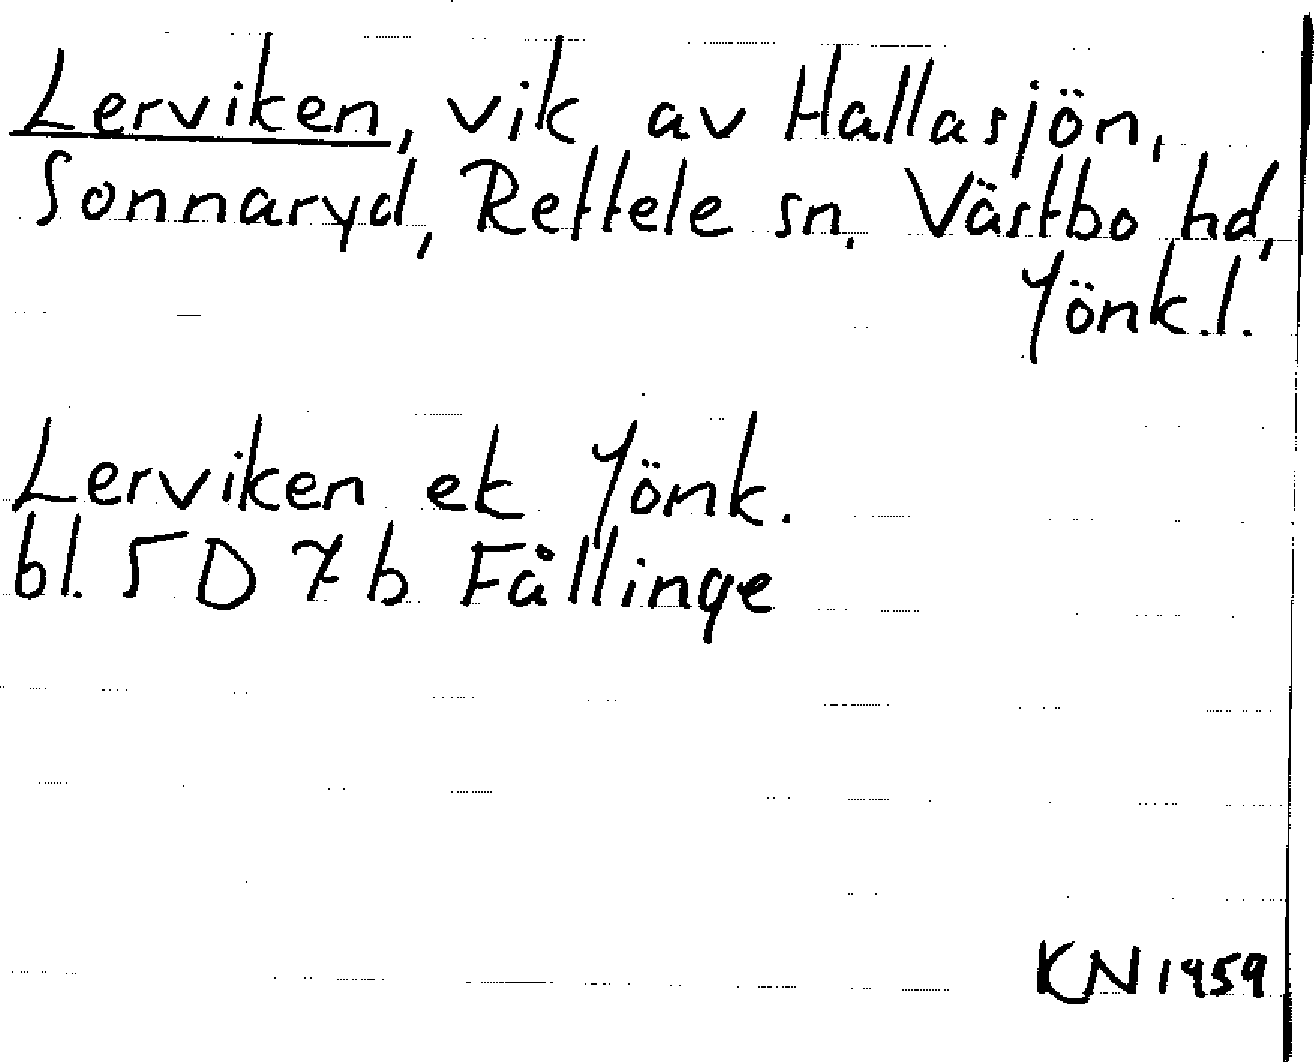 Lerviken, vik av Hallasjön,
Sonnaryd, Reftele sn, Västbo hd,
Jönk.l.
Lerviken ek Jönk.
bl. 5D 7b Fållinge
KN 1959